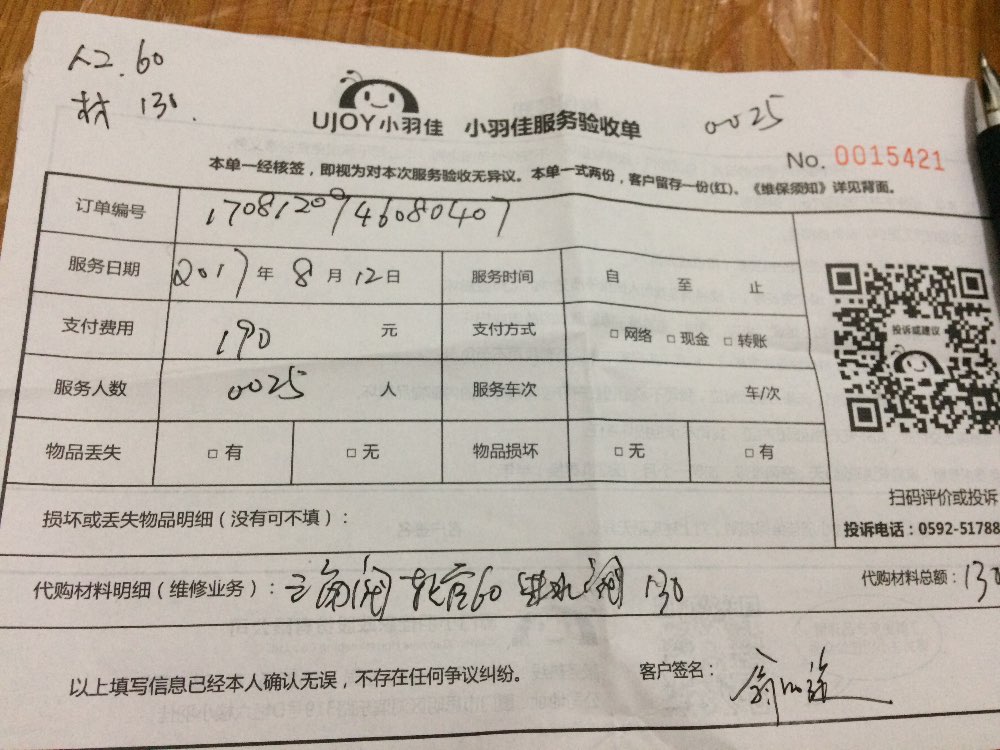 人工.60
材 130.
UJOY小羽佳 小羽佳服务验收单
0025
No. 0015421
本单一经核签，即视为对本次服务验收无异议。本单一式两份，客户留存一份(红)、《维保须知》详见背面。
订单编号 1708120946080407
服务日期 2017 年 8 月 12 日 服务时间 自 至 止
支付费用 190 元 支付方式 □ 网络 □ 现金 □ 转账
投诉或建议
服务人数 0025 人 服务车次 车/次
物品丢失 □ 有 □ 无 物品损坏 □ 无 □ 有
扫码评价或投诉
损坏或丢失物品明细（没有可不填）：
投诉电话：0592-51788
代购材料明细（维修业务）： 三角阀 60 进水阀 130
代购材料总额： 130
以上填写信息已经本人确认无误，不存在任何争议纠纷。
客户签名：